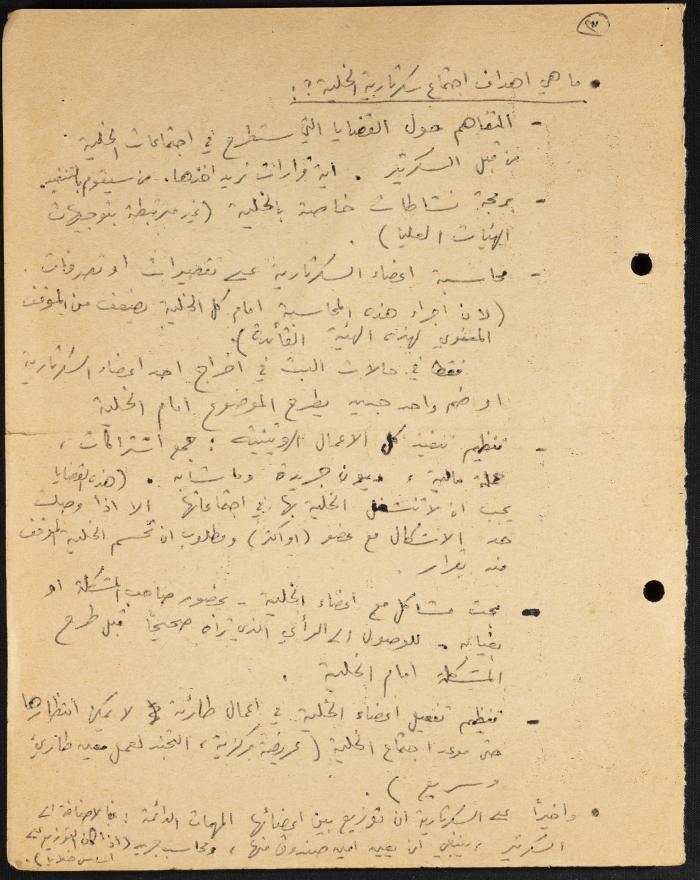 ٣
• ما هي اهداف اجتماع سكرتارية الخلية؟:
- التفاهم حول القضايا التي ستطرح في اجتماعات الخلية
من قبل السكرتير . اية قرارات نريد اخذها. من سيقوم بالتنفيذ.
- برمجة نشاطات خاصة بالخلية (غير مرتبطة بتوجيهات
الهيئات العليا).
- محاسبة اعضاء السكرتارية على تقصيرات او تصرفات
(لان اجراء هذه المحاسبة امام كل الخلية يضعف من الموقف
المعنوي لهذه الهيئة القائدة).
فقط في حالات البت في اخراج احد اعضاء السكرتارية
او ضم واحد جديد يطرح الموضوع امام الخلية
- تنظيم تنفيذ كل الاعمال الروتينية : جمع اشتراكات ،
حملة مالية ، ديون جريدة وما شابه . (هذه القضايا
يجب ان لا تنشغل الخلية بها في اجتماعاتها الا اذا وصلت
حد الاشكال مع عضو (او اكثر) ومطلوب ان تحسم الخلية الموقف
منه بقرار .
- بحث مشاكل مع اعضاء الخلية - بحضور صاحب المشكلة او
بغيابه - للوصول الى الرأي الذي نراه صحيحاً قبل طرح
المشكلة امام الخلية .
- تنظيم تفعيل اعضاء الخلية في اعمال طارئة لا يمكن انتظارها
حتى موعد اجتماع الخلية (عريضة مركزية ، التجند لعمل معين طارئ
وسريع ) .
• واخيراً على السكرتارية ان توزع بين اعضائها المهمات الدائمة : بالاضافة الى
السكرتير ، ينبغي ان يعين امين صندوق منها ، ومحاسب جريدة (اذا كان التوزيع على
اساس خلايا).